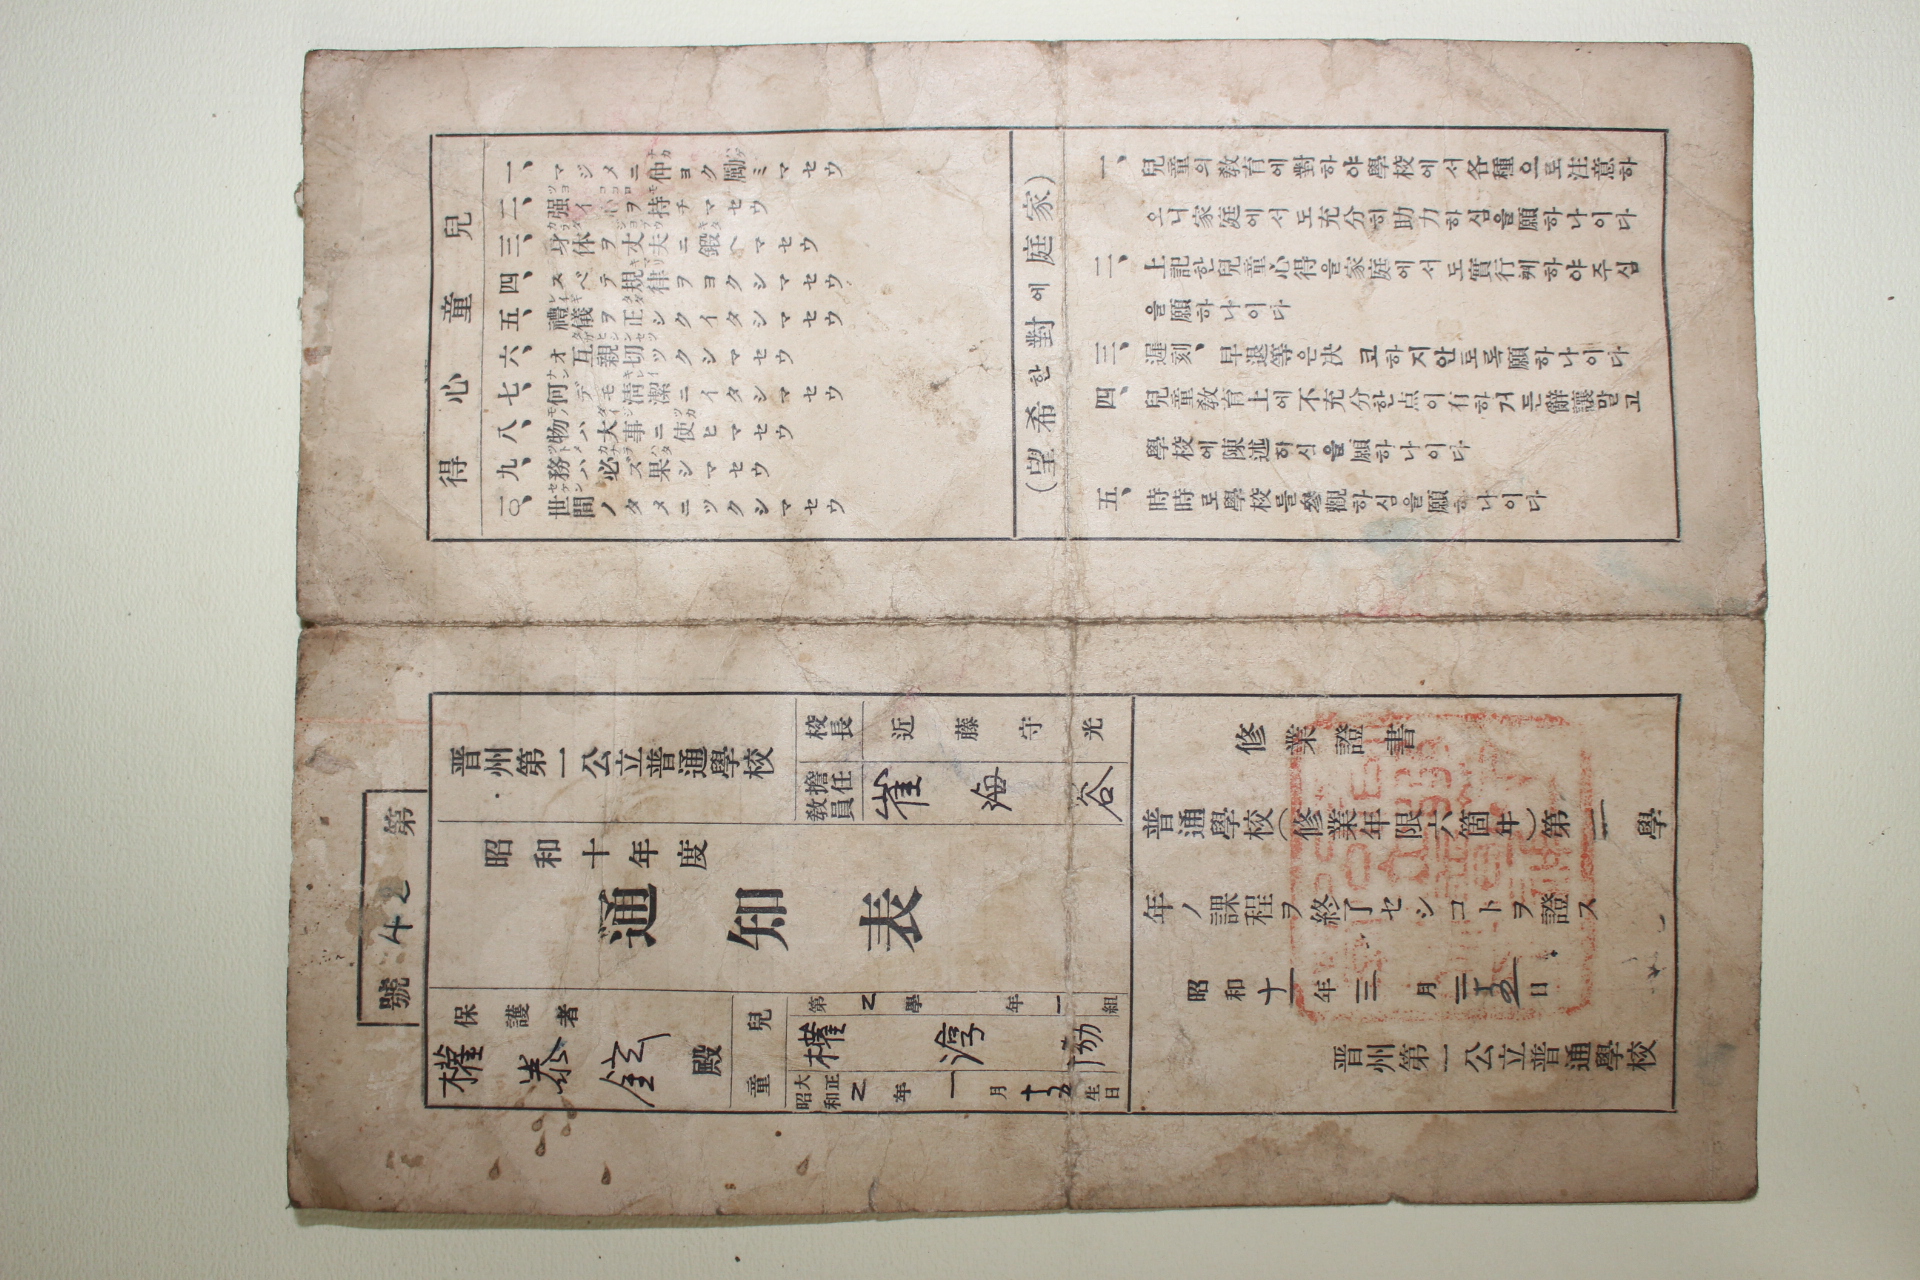 兒童心得
一、マジメニ仲ヨク勵ミマセウ
二、强イ心ヲ持チマセウ
三、身体ヲ丈夫ニ鍛ヘマセウ
四、スベテ規律ヲヨクシマセウ
五、禮儀ヲ正シクイタシマセウ
六、オ互親切ツクシマセウ
七、何デモ淸潔ニイタシマセウ
八、物ハ大事ニ使ヒマセウ
九、務ハ必ズ果シマセウ
一〇、世間ノタメニツクシマセウ
(家庭에對한希望)
一、兒童의敎育에對하야學校에서各種으로注意하
으니家庭에서도充分히助力하심을願하나이다
二、上記한兒童心得을家庭에서도實行케하야주심
을願하나이다
三、遲刻、早退等은決코하지안토록願하나이다
四、兒童敎育上에不充分한点이有하거든辭讓말고
學校에陳述하심을願하나이다
五、時時로學校를參觀하심을願하나이다
第42號
晋州第一公立普通學校
校長 近藤守光
敎員擔任 崔海谷
昭和十年度
通知表
保護者
權泰鉉殿
兒童
第2學年一組
權淳勛
大正昭和2年一月十五日生
修業證書
普通學校(修業年限六箇年)第二學
年ノ課程ヲ終了セシコトヲ證ス
昭和十一年三月二十五日
晋州第一公立普通學校